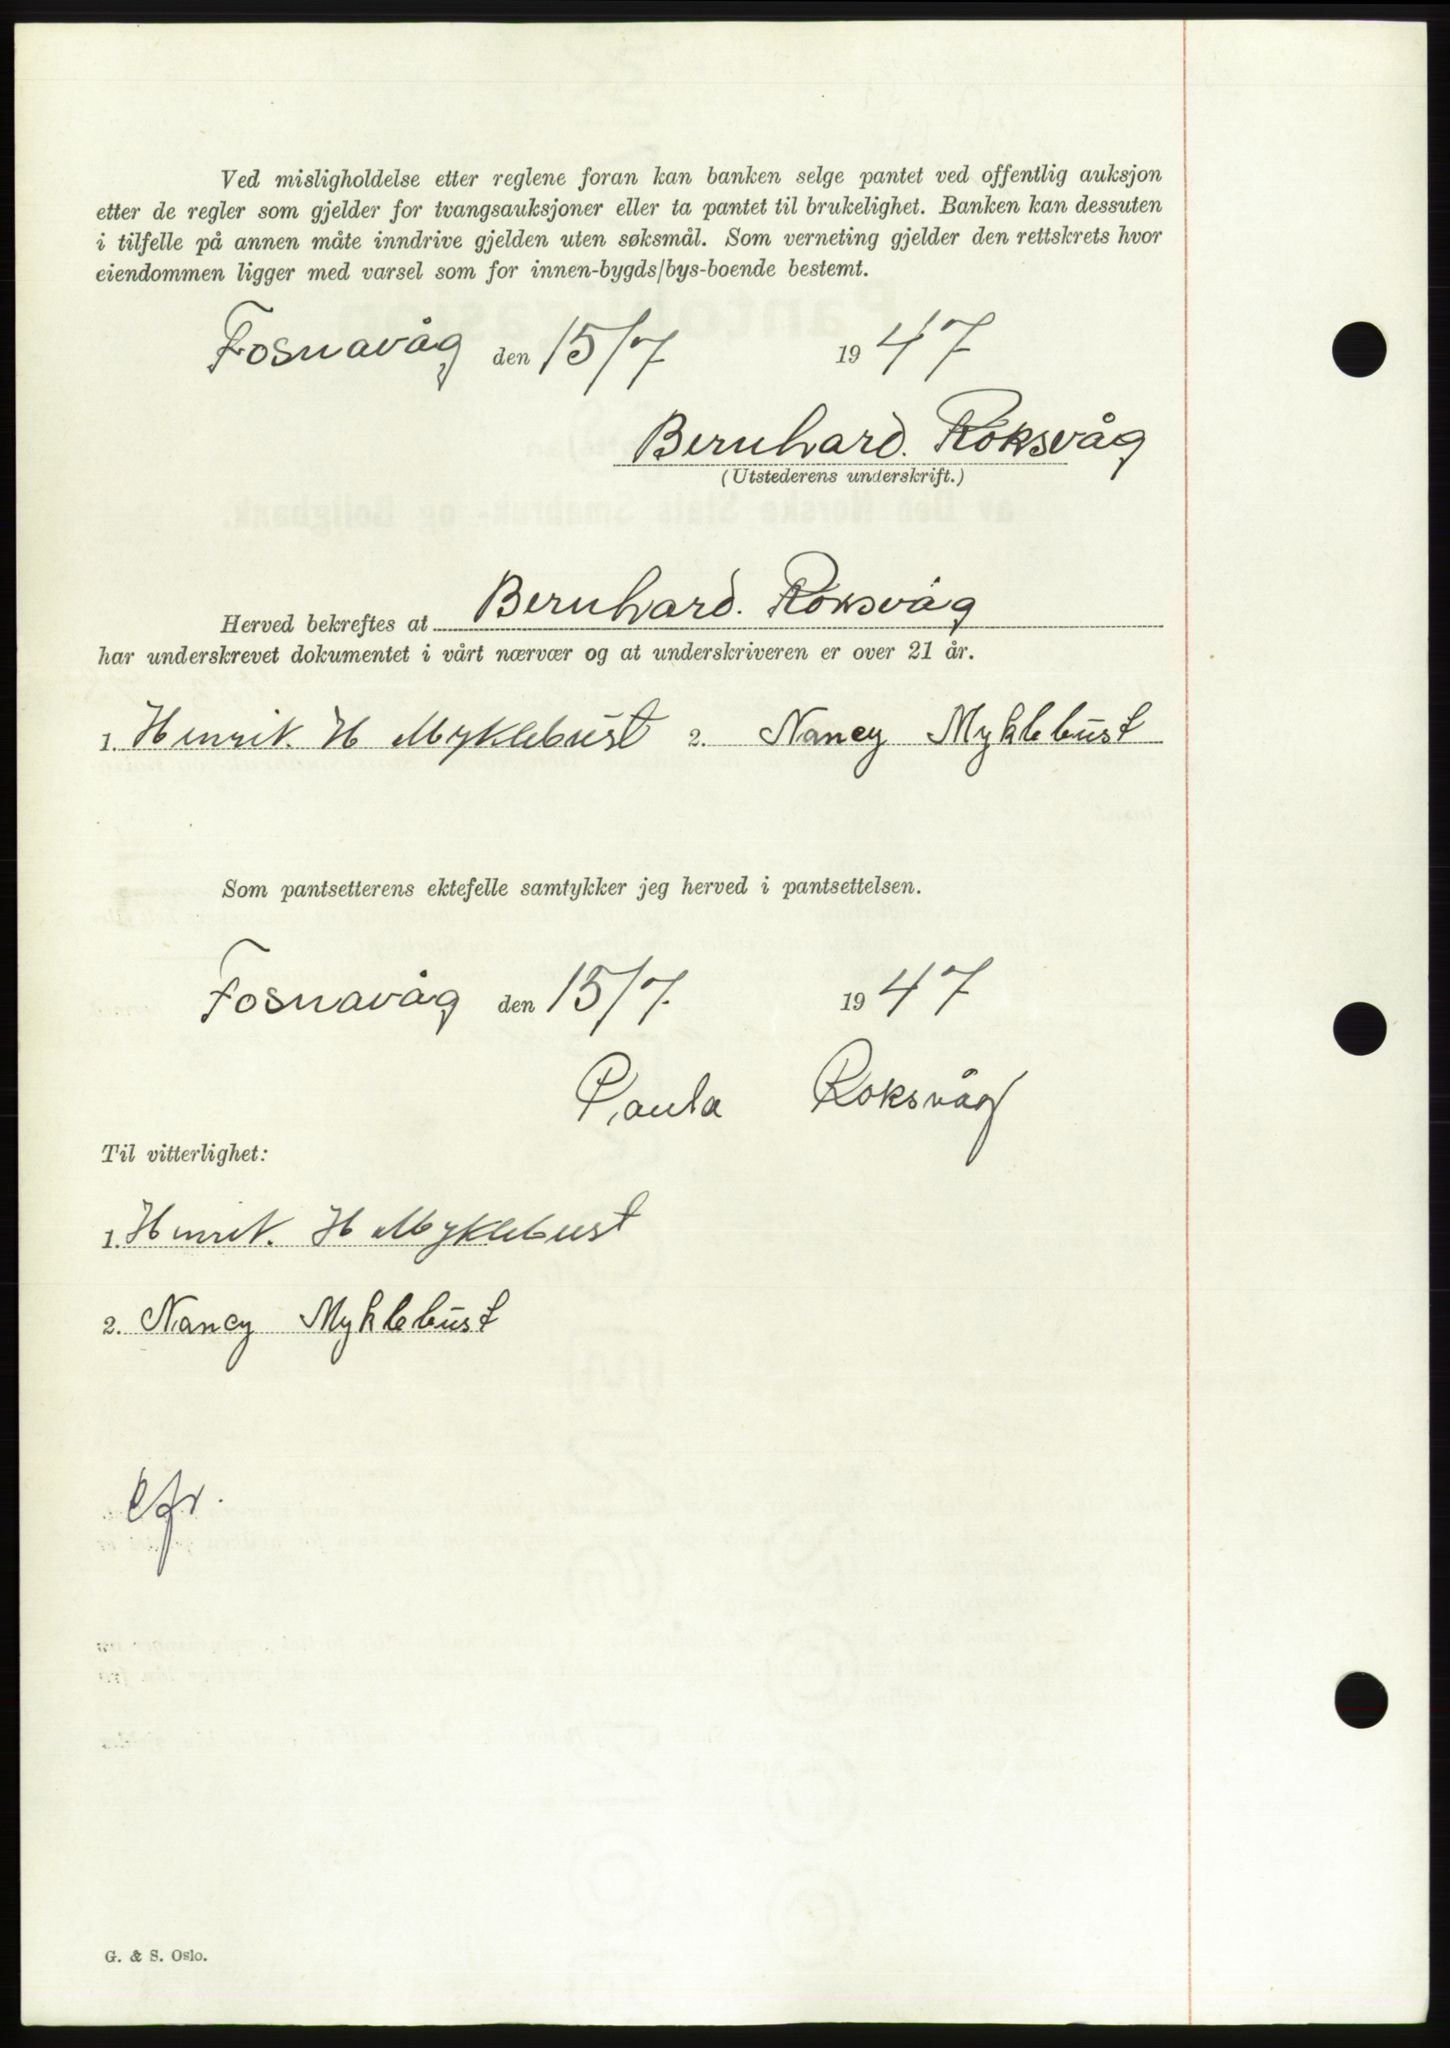 Ved misligholdelse etter reglene foran kan banken selge pantet ved offentlig auksjon
etter de regler som gjelder for tvangsauksjoner eller ta pantet til brukelighet. Banken kan dessuten
i tilfelle på annen måte inndrive gjelden uten søksmål. Som verneting gjelder den rettskrets hvor
eiendommen ligger med varsel som for innen-bygds/bys-boende bestemt.
Fosnavåg den 15/7 1947
Bernhard. Roksvåg
(Utstederens underskrift.)
Herved bekreftes at Bernhard. Roksvåg
har underskrevet dokumentet i vårt nærvær og at underskriveren er over 21 år.
1. Henrik. H Myklebust 2. Nancy Myklebust
Som pantsetterens ektefelle samtykker jeg herved i pantsettelsen.
Fosnavåg den 15/7. 1947
Paula Roksvåg
Til vitterlighet:
1. Henrik. H Myklebust
2. Nancy Myklebust
G. & S. Oslo.